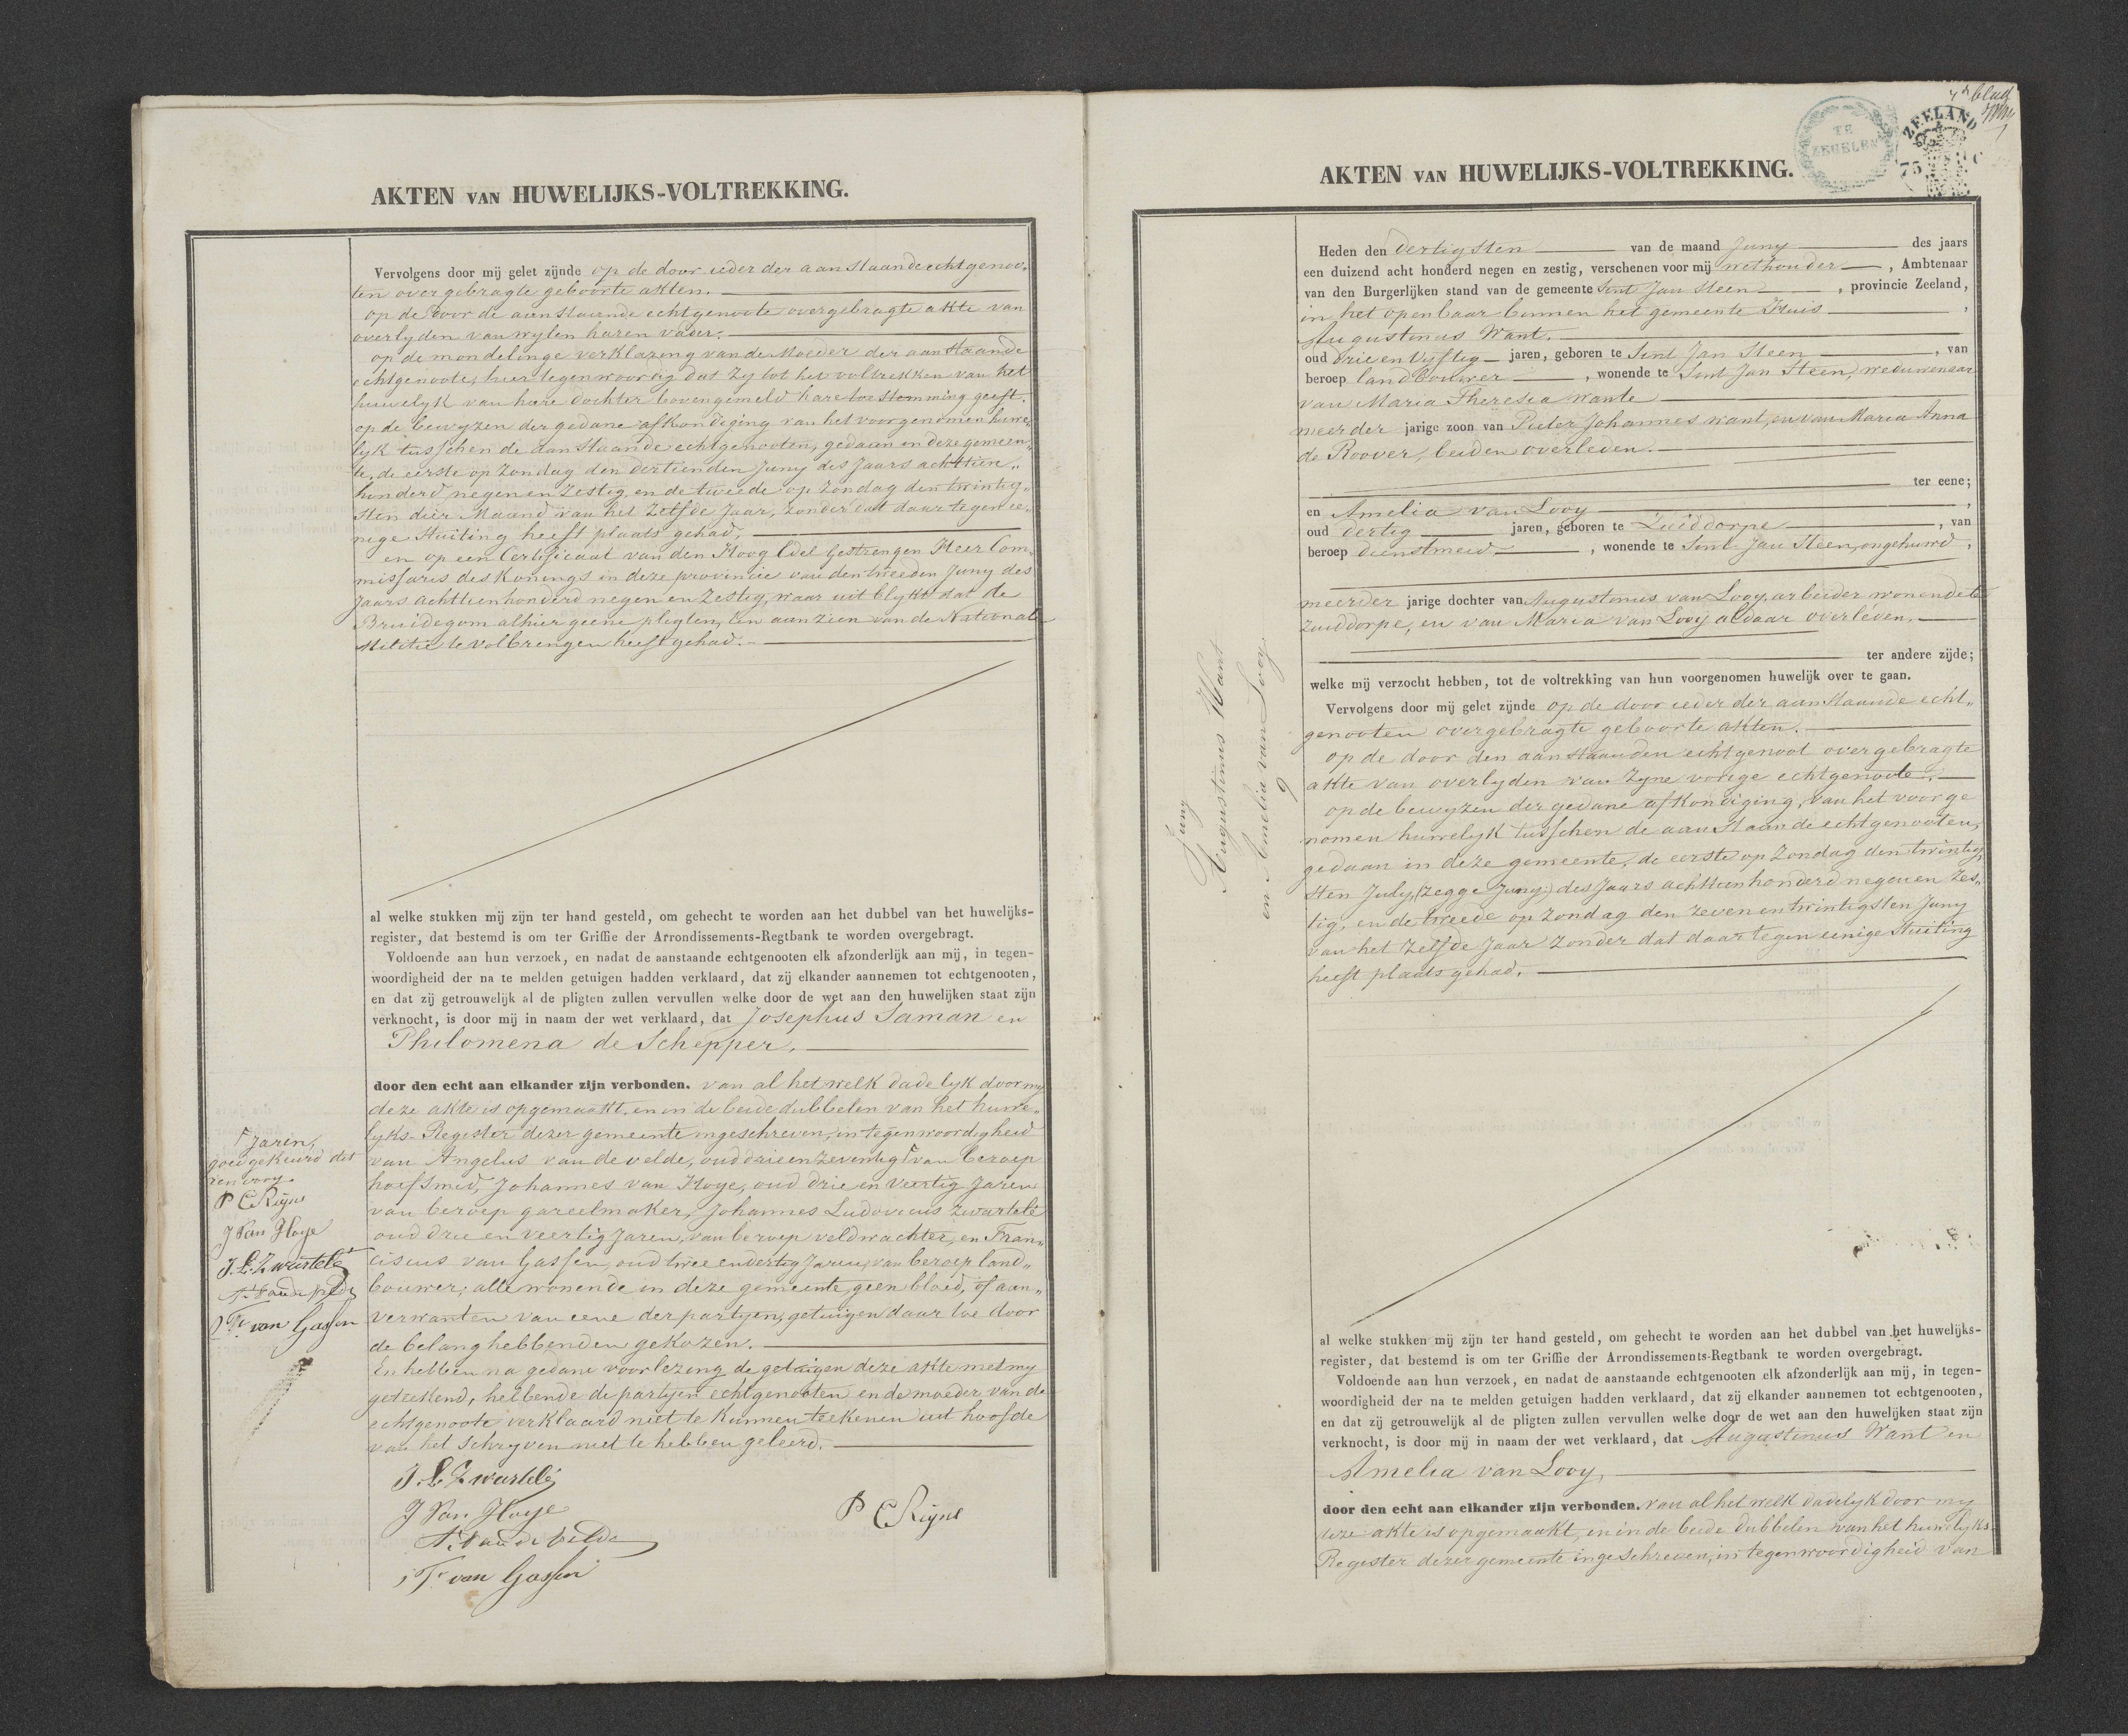 AKTEN VAN HUWELIJKS-VOLTREKKING.
Vervolgens door mij gelet zijnde op de door ieder der aanstaande echtgenoo„
ten overgebragte geboorte akten.
op de door de aanstaande echtgenoote overgebragte akte van
overlyden van wylen haren vader.
op de mondelinge verklaring van de Moeder der aanstaande
echtgenoote, hier tegenwoordig dat zy tot het voltrekken van het
huwelyk van hare dochter bovengemeld hare toestemming geeft.
op de bewyzen der gedane afkondiging van het voorgenomen huwe„
lyk tusschen de aanstaande echtgenooten, gedaan in deze gemeen„
te, de eerste op Zondag den dertienden Juny des Jaars achttien„
honderd negen en Zestig, en de tweede op Zondag den twintig„
sten dier Maand van het Zelfde Jaar, zonder dat daar tegen ee„
nige Stuiting heeft plaats gehad,
en op een Certificaat van den Hoog Edel Gestrengen Heer Com„
missaris des Konings in deze provincie van den tweeden Juny des
Jaars achttienhonderd negen en Zestig, waar uit blykt dat de
Bruidegom alhier geene pligten, ten aanzien van de Nationale
Militie te volbrengen heeft gehad.
al welke stukken mij zijn ter hand gesteld, om gehecht te worden aan het dubbel van het huwelijks-
register, dat bestemd is om ter Griffie der Arrondissements-Regtbank te worden overgebragt.
Voldoende aan hun verzoek, en nadat de aanstaande echtgenooten elk afzonderlijk aan mij, in tegen-
woordigheid der na te melden getuigen hadden verklaard, dat zij elkander aannemen tot echtgenooten,
en dat zij getrouwelijk al de pligten zullen vervullen welke door de wet aan den huwelijken staat zijn
verknocht, is door mij in naam der wet verklaard, dat Josephus Saman en
Philomena de Schepper,
door den echt aan elkander zijn verbonden. van al het welk dadelyk door my
deze akte is opgemaakt, en in de beide dubbelen van het huwe„
lyks-Register dezer gemeente ingeschreven, in tegenwoordigheid
van Angelus van de velde, oud drie en zeventig ┌ van beroep
hoefsmid, Johannes van Hoye, oud drie en veertig Jaren
van beroep gareelmaker, Johannes Ludovicus Zwartelé
oud drie en veertig Jaren, van beroep veldwachter, en Fran„
ciscus van Gassen, oud twee en dertig Jaren, van beroep land„
bouwer; alle wonende in deze gemeente, geen bloed, of aan„
verwanten van eene der partyen, getuigen daar toe door
de belanghebbenden gekozen.
En hebben na gedane voorlezing de getuigen deze akte met my
geteekend, hebbende de partyen echtgenooten en de moeder van de
echtgenoote verklaard niet te kunnen teekenen uit hoofde
van het schryven niet te hebben geleerd.
J. L. Zwartelé
J Van Hoye
P C Rijns
A. Van de Velde
F. van Gassen
┌ Jaren,
goedgekeurd dit
renvooy.
P C Rijns
J Van Hoye
J. L. Zwartelé
A. Van de Velde
F. van Gassen
4e blad
TE
ZEELAND
75 C
AKTEN VAN HUWELIJKS-VOLTREKKING.
Juny
Augustinus Want
en Amelia van Looy.
9
Heden den dertigsten van de maand Juny des jaars
een duizend acht honderd negen en zestig, verschenen voor mij wethouder, Ambtenaar
van den Burgerlijken stand van de gemeente Sint Jan Steen, provincie Zeeland,
in het openbaar binnen het gemeente Huis,
Augustinus Want.
oud drie en vyftig jaren, geboren te Sint Jan Steen, van
beroep landbouwer, wonende te Sint Jan Steen, weduwenaar
van Maria Theresia Wante
meerder jarige zoon van Pieter Johannes want, en van Maria Anna
de Roover, beiden overleden.
ter eene;
en Amelia van Looy,
oud dertig jaren, geboren te Zuiddorpe, van
beroep dienstmeid, wonende te Sint Jan Steen, ongehuwd,
meerder jarige dochter van Augustinus van Looy, arbeider wonende te
Zuiddorpe, en van Maria van Looy aldaar overleden.
ter andere zijde;
welke mij verzocht hebben, tot de voltrekking van hun voorgenomen huwelijk over te gaan.
Vervolgens door mij gelet zijnde op de door ieder der aanstaande echt„
genooten overgebragte geboorte akten.
op de door den aanstaanden echtgenoot overgebragte
akte van overlyden van Zyne vorige echtgenoote.
op de bewyzen der gedane afkondiging, van het voorge
nomen huwelyk tusschen de aanstaande echtgenooten,
gedaan in deze gemeente, de eerste op Zondag den twintig„
sten July, (zegge Juny) des Jaars achttienhonderd negen en Zes„
tig, en de tweede op Zondag den zeven en twintigsten Juny
van het Zelfde Jaar zonder dat daar tegen eenige Stuiting
heeft plaats gehad.
al welke stukken mij zijn ter hand gesteld, om gehecht te worden aan het dubbel van het huwelijks-
register, dat bestemd is om ter Griffie der Arrondissements-Regtbank te worden overgebragt.
Voldoende aan hun verzoek, en nadat de aanstaande echtgenooten elk afzonderlijk aan mij, in tegen-
woordigheid der na te melden getuigen hadden verklaard, dat zij elkander aannemen tot echtgenooten,
en dat zij getrouwelijk al de pligten zullen vervullen welke door de wet aan den huwelijken staat zijn
verknocht, is door mij in naam der wet verklaard, dat Augustinus Want en
Amelia van Looy,
door den echt aan elkander zijn verbonden. van al het welk dadelyk door my
deze akte is opgemaakt, en in de beide dubbelen van het huwelyks-
Register dezer gemeente ingeschreven, in tegenwoordigheid van